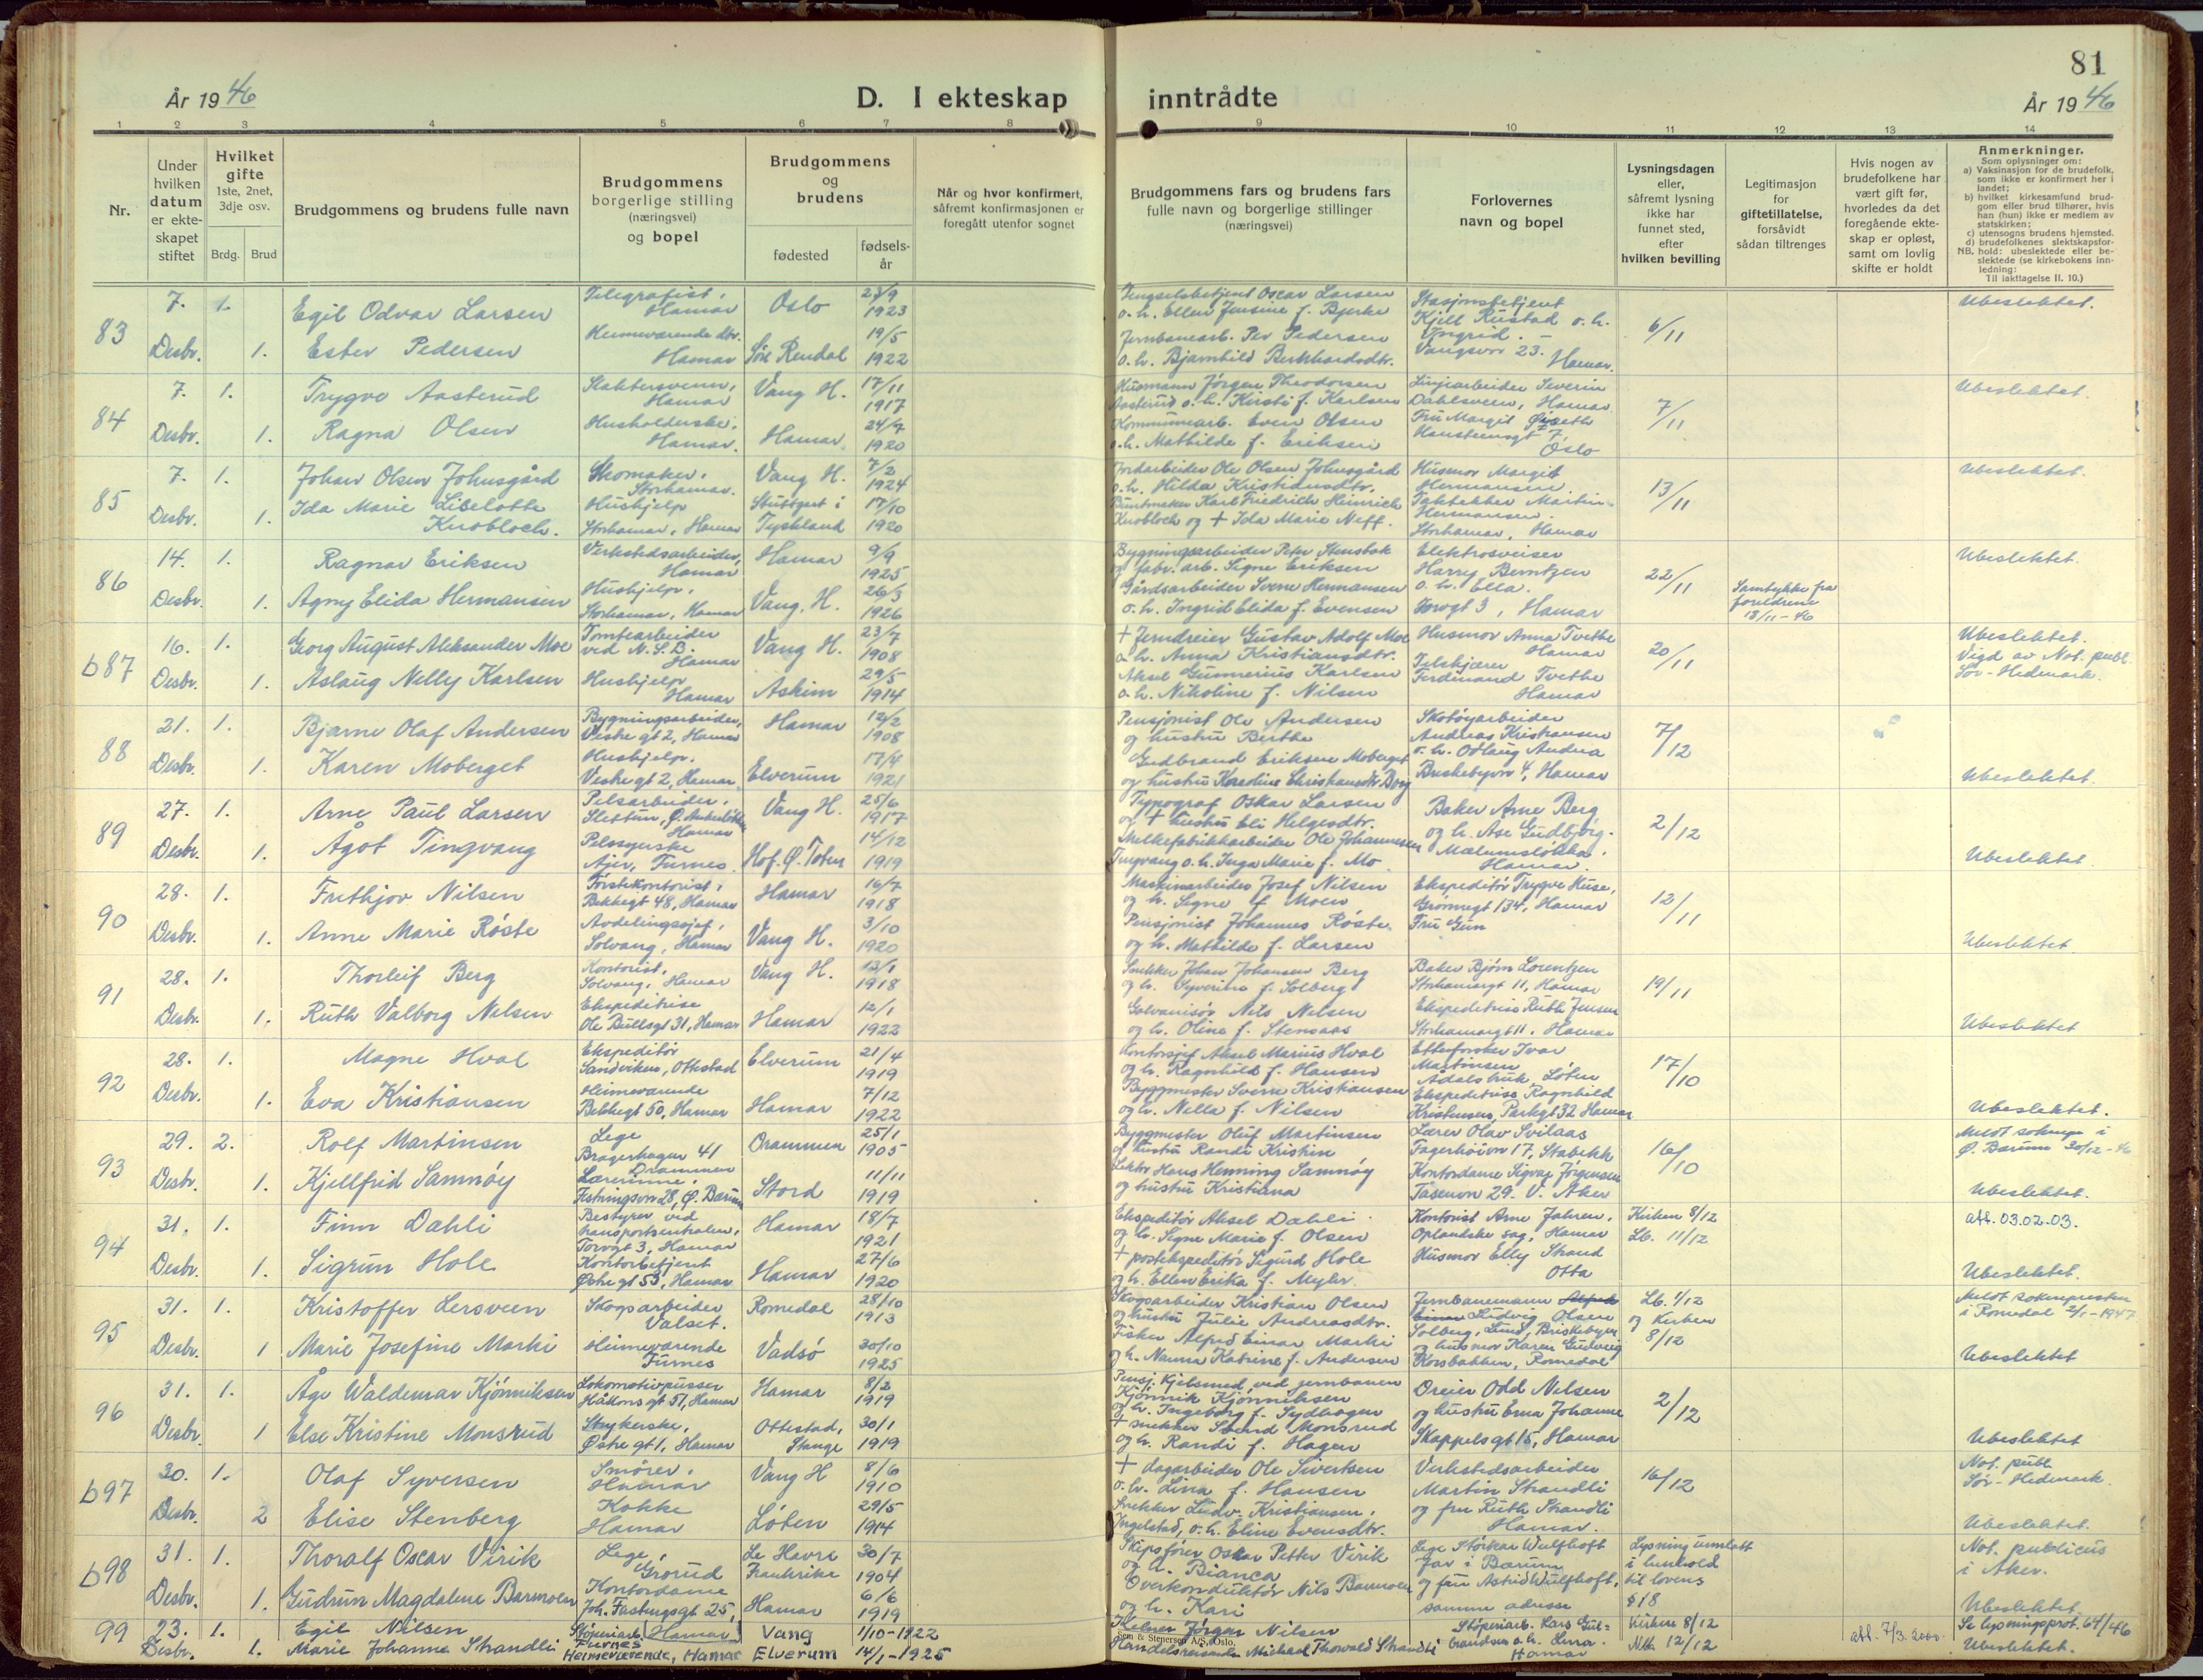 81
År 1946
D. I ekteskap inntrådte
År 1946
1 2 3 4 5 6 7 8 9 10 11 12 13 14
Nr.
Under hvilken datum er ekte-skapet stiftet
Hvilket gifte 1ste, 2net, 3dje osv.
Brdg. Brud
Brudgommens og brudens fulle navn
Brudgommens borgerlige stilling (næringsvei) og bopel
Brudgommens og brudens
fødested
fødsels-år
Når og hvor konfirmert, såfremt konfirmasjonen er foregått utenfor sognet
Brudgommens fars og brudens fars fulle navn og borgerlige stillinger (næringsvei)
Forlovernes navn og bopel
Lysningsdagen eller, såfremt lysning ikke har funnet sted, efter hvilken bevilling
Legitimasjon for giftetillatelse, forsåvidt sådan tiltrenges
Hvis nogen av brudefolkene har vært gift før, hvorledes da det foregående ekte-skap er opløst, samt om lovlig skifte er holdt
Anmerkninger.
Som oplysninger om:
a) Vaksinasjon for de brudefolk, som ikke er konfirmert her i landet;
b) hvilket kirkesamfund brud-gom eller brud tilhører, hvis han (hun) ikke er medlem av statskirken;
c) utensogns brudens hjemsted.
d) brudefolkenes slektskapsfor-hold: ubeslektede eller be-slektede (se kirkebokens inn-ledning:
NB. Til iakttagelse II. 10.)
83 7. Desbr. 1. Egil Odvar Larsen Telegrafist, Hamar Oslo 23/9 1923
1. Ester Pedersen Heimeværende dtr. Hamar Søre Rendal 19/5 1922
Fengselsbetjent Oscar Larsen o.h. Ellen Jensine f. Bjerke
Jernbanearb. Per Pedersen o.h. Bjarnhild Burkhardsdtr.
Stasjonsbetjent Kjell Rustad o.h. Yngrid. Vangsvn 23. Hamar.
6/11 Ubeslektet.
84 7. Desbr. 1. Trygve Aasterud Hamar Vang H. 17/11 1917
1. Ragna Olsen Husholderske, Hamar. Hamar 24/7 1920
Husmann Jørgen Theodorsen Aasterud o.h. Kirsti f. Karlsen
Kommunearb. Even Olsen o.h. Mathilde f. Eriksen
Linjearbeider Severin Dahlsveen, Hamar. Fru Margit Hansteensgt 7, Oslo
7/11 Ubeslektet.
85 7. Desbr. 1. Johan Olsen Johnsgård Skomaker, Storhamar. Vang H. 7/2 1924
1. Ida Marie Liselotte Knobloch. Hushjelp Storhamar, Hamar Stuttgart i Tyskland 17/10 1920
Jordarbeider Ole Olsen Johnsgård o.h. Hilda Kristiansdtr.
Buntmaker Karl Friedrich Heinrich Knobloch og + Ida Marie Neff.
Husmor Margit Hermansen. Taktekker Martin Hermansen. Storhamar, Hamar
13/11 Ubeslektet.
86 14. Desbr. 1. Ragnar Eriksen Verkstedsarbeider, Hamar Hamar 9/9 1925
1. Agny Elida Hermansen Hushjelp, Storhamar, Hamar Vang, H. 26/3 1926
Bygningsarbeider Peter Stensbak og fabr. arb. Signe Eriksen
Gårdsarbeider Sverre Hermansen o.h. Ingrid Elida f. Evensen
Elektrosveiser Harry Berntzen o.h. Ella. Torvgt 3, Hamar
22/11 Samtykke fra foreldrene 18/11-46 Ubeslektet.
b87 16. Desbr. 1. Georg August Aleksander Moe Tomtearbeider ved N.S.B. Hamar Vang H. 23/7 1908
1. Aslaug Nelly Karlsen Hushjelp Hamar Askim 29/5 1914
+ Jerndreier Gustav Adolf Moe o.h. Anna Kristiansdtr.
Aksel Gunnerius Karlsen o.h. Nikoline f. Nilsen
Husmor Anna Tvethe Hamar Ferdinand Tvethe Hamar
20/11 Ubeslektet. Vigd av Not. publ. Sør-Hedmark.
88 21. Desbr. 1. Bjarne Olaf Andersen Bygningsarbeider, Vestre gt 2, Hamar Hamar 12/2 1908
1. Karen Moberget Hushjelp. Vestre gt 2, Hamar. Elverum 17/4 1921
Pensjonist Ole Andersen og hustru Berthe
Gudbrand Eriksen Moberget og hustru Karoline Christiansdtr Borg
Skotøyarbeider Andreas Kristiansen o.h. Odlaug Andrea Briskebyvn 4, Hamar
7/12 Ubeslektet.
89 27. Desbr. 1. Arne Paul Larsen Pelsarbeider, Slettun, Hamar Vang H. 25/6 1917
1. Ågot Tingvang Pelssyerske Ajer, Furnes. Hof. Ø. Toten 14/12 1919
Typograf Oskar Larsen og + hustru Eli Helgesdtr.
Melkefabrikkarbeider Ole Johannesen Tingvang o.h. Inga Marie f. Mo
Baker Arne Berg og h. Åse Gudbjørg. Mælumsløkka, Hamar.
2/12 Ubeslektet.
90 28. Desbr. 1. Frithjov Nilsen Førstekontorist, Bekkegt 48, Hamar Hamar 16/7 1918
1. Anne Marie Røste Avdelingssjef, Solvang, Hamar Vang H. 3/10 1920
Maskinarbeider Josef Nilsen og h. Signe f. Moen
Pensjonist Johannes Røste. og h. Mathilde f. Larsen
Ekspeditør Trygve Kuse, Grønnegt 134, Hamar Fru Gun
12/11 Ubeslektet
91 28. Desbr. 1. Thorleif Berg Kontorist, Solvang, Hamar Vang H. 13/1 1918
1. Ruth Valborg Nilsen Ekspeditrise Ole Bullsgt 31, Hamar Hamar 12/1 1922
Snekker Johan Johansen Berg og h. Syverine f. Solberg
Galvanisør Nils Nilsen og h. Oline f. Stensaas
Baker Bjørn Lorentzen Storhamargt 11, Hamar Ekspeditrise Ruth Jensen Storhamargt 11, Hamar
19/11 Ubeslektet
92 28. Desbr. 1. Magne Hval Ekspeditør Sandviken, Ottestad Elverum 21/4 1919
1. Eva Kristiansen Heimeværende Bekkegt 50, Hamar Hamar 7/12 1922
Kontorsjef Aksel Marius Hval og h. Ragnhild f. Hansen
Byggmester Sverre Kristiansen og h. Nella f. Nilsen
Etterforsker Ivar Martinsen Ådalsbruk, Løten Ekspeditrise Ragnhild Kristensen, Parkgt 32 Hamar
17/10 Ubeslektet.
93 29. Desbr. 2. Rolf Martinsen Lege Bragerhagen 41 Drammen Drammen 25/1 1905
1. Kjellfrid Samnøy Lærerinne, Ø. Bærum Stord 11/11 1919
Byggmester Oluf Martinsen og hustru Randi Kristin
Lektor Hans Henning Samnøy og hustru Kristiana
Lærer Olav Svilaas Fagerhøivn 17, Stabekk Kontordame Sigvar Jørgensen Tasenvn 29. V. Aker
16/10 Meldt sokneprest i Ø. Bærum 30/12-46 Ubeslektet.
94 31. Desbr. 1. Finn Dahli Bestyrer ved transportsentralen, Torvgt 3, Hamar Hamar 18/7 1921
1. Sigrun Hole Kontorbetjent Østre gt 53, Hamar Hamar 27/6 1920
Ekspeditør Aksel Dahli og h. Signe Marie f. Olsen
+ postekspeditør Sigurd Hole og h. Ellen Erika f. Myhr.
Kontorist Arne Jahren, Oplandske sag, Hamar Husmor Elly Strand Otta
Kirken 8/12 Lb. 11/12 att. 03.02.03. Ubeslektet.
95 31. Desbr. 1. Kristoffer Lersveen Skogsarbeider Valset. Romedal 28/10 1913
1 Marie Josefine Marki Heimeværende Furnes Vadsø 30/10 1925
Skogsarbeider Kristian Olsen og hustru Julie Andreasdtr.
Fisker Alfred Einar Marki og h. Nanna Katrine f. Andersen
Jernbanemann Alfred Einar Ludvig Olsen Solberg, Lund, Briskebyen og husmor Karen Gudveig Korsbakken, Romedal
Lb. 1/12 og Kirken 8/12 Meldt sokneprestem i Romedal 2/1-1947 Ubeslektet
96 31. Desbr. 1. Åge Waldemar Kjønniksen Lokomotivpusser Håkons gt 57, Hamar Hamar 8/2 1919
1 Else Kristine Monsrud Strykerske, Østre gt 1, Hamar Ottestad, Stange 30/1 1919
Pensj. Kjelsmed ved jernbanen Kjønnik Kjønniksen og h. Ingeborg f. Sydhagen
+ snekker Svend Monsrud og h. Randi f. Hagen
Dreier Odd Nilsen og hustru Erna Johanne Skappelsgt 15, Hamar
2/12 Ubeslektet
b97 30. Desbr. 1. Olaf Syversen Smører, Hamar Vang H 8/6 1910
2 Elise Stenberg Kokke Hamar Løten 29/5 1914
+ dagarbeider Ole Sivertsen o.h. Lina f. Hansen
Snekker Ludv. Kristiansen, Ingelstad, o.h. Eline Evensdtr.
Verkstedsarbeider Martin Strandli og fru Ruth Strandli Hamar.
16/12 Not. publ. Sør-Hedmark. Ubeslektet.
b98 31. Desbr. 1. Thoralf Oscar Virik Lege, Grorud Le Havre Frankrike 30/7 1904
1. Gudrun Magdalene Barmoen Kontordame Joh. Fastingsgt 25, Hamar 6/6 1919
Skipsfører Oskar Petter Virik og h. Bianca
Overkonduktør Nils Barmoen og h. Kari
Lege Størkar Wulfhoft Jar i Bærum og fru Astrid Wulfhoft, samme adresse
Lysning unnlatt i henhold til lovens § 18
Not. publicus i Aker. Ubeslektet.
99 23. Desbr. 1. Egil Nilsen Støperiarb. (Hamar) Furnes Vang 1/10-1922
1. Marie Johanne Strandli Heimeværende, Hamar Elverum 14/1-1925
Kelner Jørgen Nilsen
Handelsreisende Michael Thorvald Strandli
Støperiarb. Lars Gulbrandsen o.h. Lina. Hamar
Kirken 8/12 Nth 12/12 att. 7/3. 2000. Se lysningsprot. 64/46 Ubeslektet.
Sem & Stenersen A/S, Oslo.